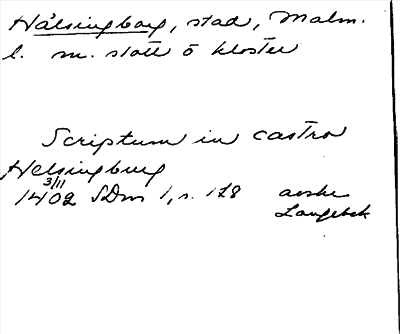 Hälsingborg, stad, Malm.
l. m. slott o kloster
Scriptum in castro
Helsingburg
3/11
1402 SDns 1, s. 128 avskr
Langebek